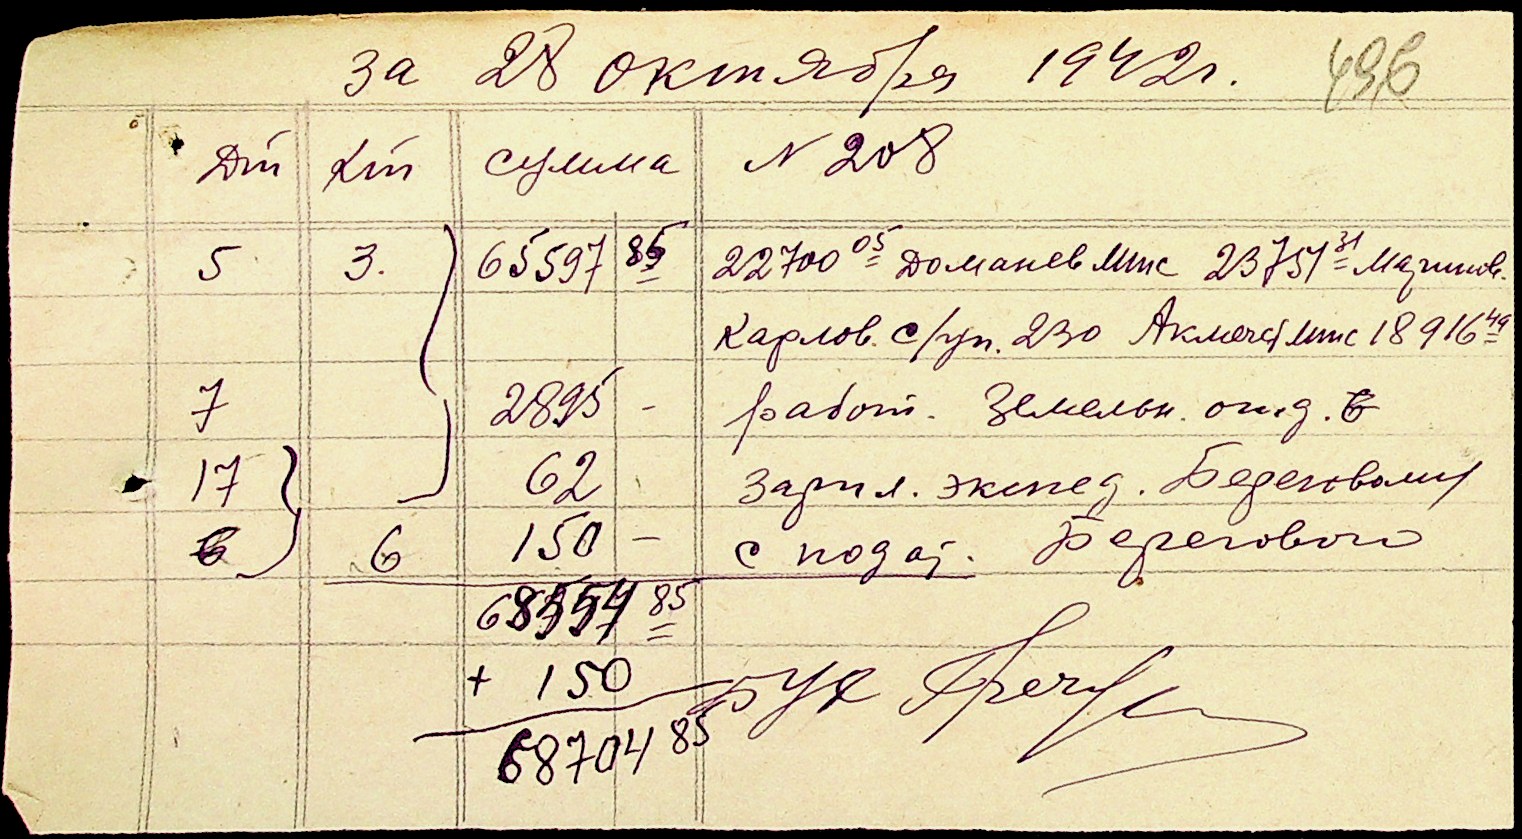 за 28 октября 1942г. 496
Дт Кт сумма N 208
5 3. 65597 85 22700 05 Доманев Мтс 23751 31 Мазинов.
Карлов. с/уп. 230 Акмечет Мтс 18916 49
7 2895 - работ. Земельн. отд. 6
17 62 - зарпл. экспед. Береговому
6 6 150 - с подот. Берегового
68554 85
+ 150 бух
68704 85